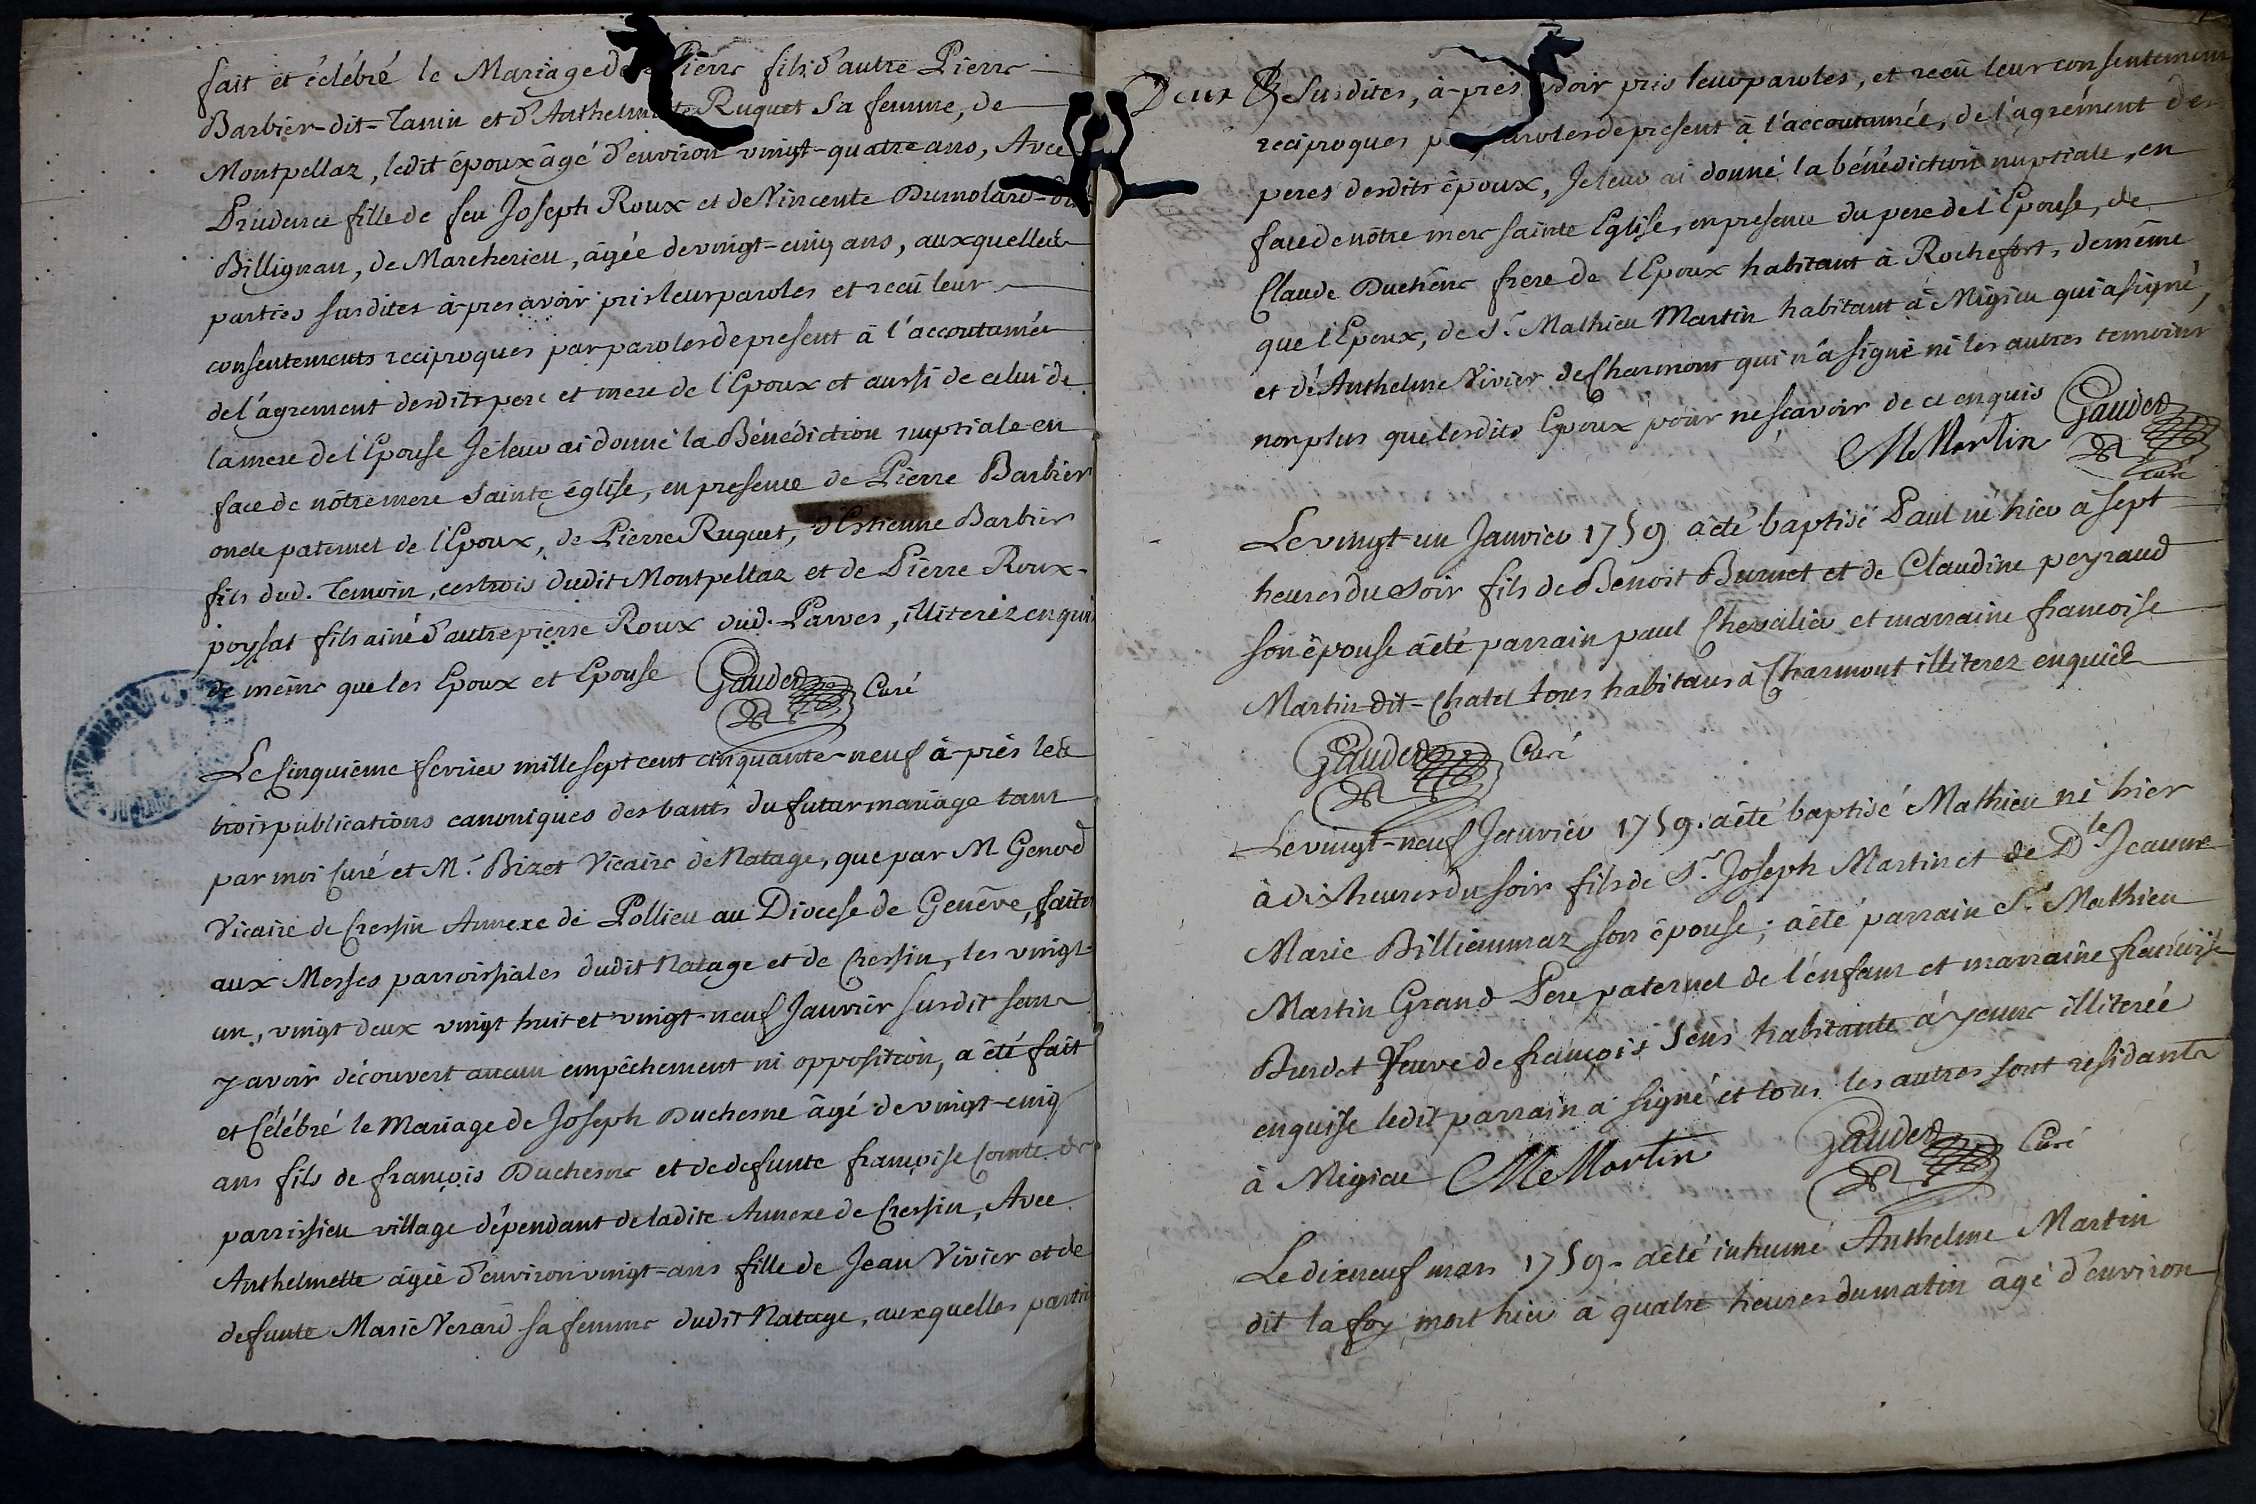 fait et célébré le Mariage de Pierre fils d'autre Pierre
Barbier-dit-Tanin et d'Anthelmette Ruquet sa femme, de
Montpellaz, ledit époux âgé d'environ vingt-quatre ans, Avec
Prudence fille de feu Joseph Roux et de Vincente Dumolard-dit
Billignan, de Marcherieu, âgée de vingt-cinq ans, auxquelles
parties susdites à-pres avoir pris leur paroles et recû leur
consentements reciproques par paroles de present à l'accoutumée
de l'agrement desdits pere et mere de l'Epoux et aussi de celui de
la mere de l'Epouse Je leur ai donné la Bénédiction nuptiale en
face de nôtre mere sainte église, en presence de Pierre Barbier
oncle paternel de l'Epoux, de Pierre Ruquet, d'Estienne Barbier
fils dud. Temoin, ces trois dudit Montpellaz et de Pierre Roux-
poysat fils ainé d'autre pierre Roux dud. Parves, illiterez enquis
de même que les Epoux et Epouse Gaudet Curé
Le cinquième fevrier mille sept cent cinquante-neuf à-près les
trois publications canoniques des bants du futur mariage tant
par moi Curé et Mr. Bizet Vicaire de Natage, que par M Genod
Vicaire de Cressin Annexe de Pollieu au Diocese de Genêve, faites
aux Messes parroissiales dudit Natage et de Cressin, les vingt-
un, vingt deux vingt huit et vingt-neuf Janvier susdit sans
y avoir découvert aucun empêchement ni opposition, a été fait
et Célébré le Mariage de Joseph Duchesne âgé de vingt-cinq
ans fils de françois Duchesne et de defunte françoise Comte de
parrissieu village dépendant de ladite Annexe de Cressin, Avec
Anthelmette âgée d'environ vingt-ans fille de Jean Vivier et de
defunte Marie Verard sa femme dudit Natage, auxquelles parties
Deux susdites, à-près avoir pris leur paroles, et recû leur consentements
reciproques par paroles de present à l'accoutumée, de l'agrément des
peres desdits époux, Je leur ai donné la bénédiction nuptiale, en
face de nôtre mere sainte Eglise, en presence du pere de l'Epouse, de
Claude Duchêne frere de l'Epoux habitant à Rochefort, de même
que l'Epoux, de Sr. Mathieu Martin habitant à Migieu qui a signé,
et d'Anthelme Vivier de Charmont qui n'a signé ni les autres temoins
non plus que lesdits Epoux pour ne scavoir de ce enquis Gaudet
MMartin Curé
Le vingt-un Janvier 1759 a été baptisé Paul né hier a sept
heures du soir fils de Benoit Burnet et de Claudine peyraud
son épouse a été parrain paul Chevalier et marraine francoise
Martin-dit-Chatel tous habitans à Charmont illiterez enquis
Gaudet Curé
Le vingt-neuf Janvier 1759. a été baptisé Mathieu né hier
à dix heures du soir fils de Sr. Joseph Martin et de Dle Jeanne
Marie Billiemmaz son épouse; a été parrain Sr. Mathieu
Martin Grand Pere paternel de l'enfant et marraine françoise
Burdet Veuve de françois Jens habitante à yenne illiterée
enquise ledit parrain a signé et tous les autres sont residants
à Migieu MMartin Gaudet Curé
Le dix neuf mars 1759. a été inhumé Anthelme Martin
dit la foy mort hier à quatre heures du matin âgé d'environ